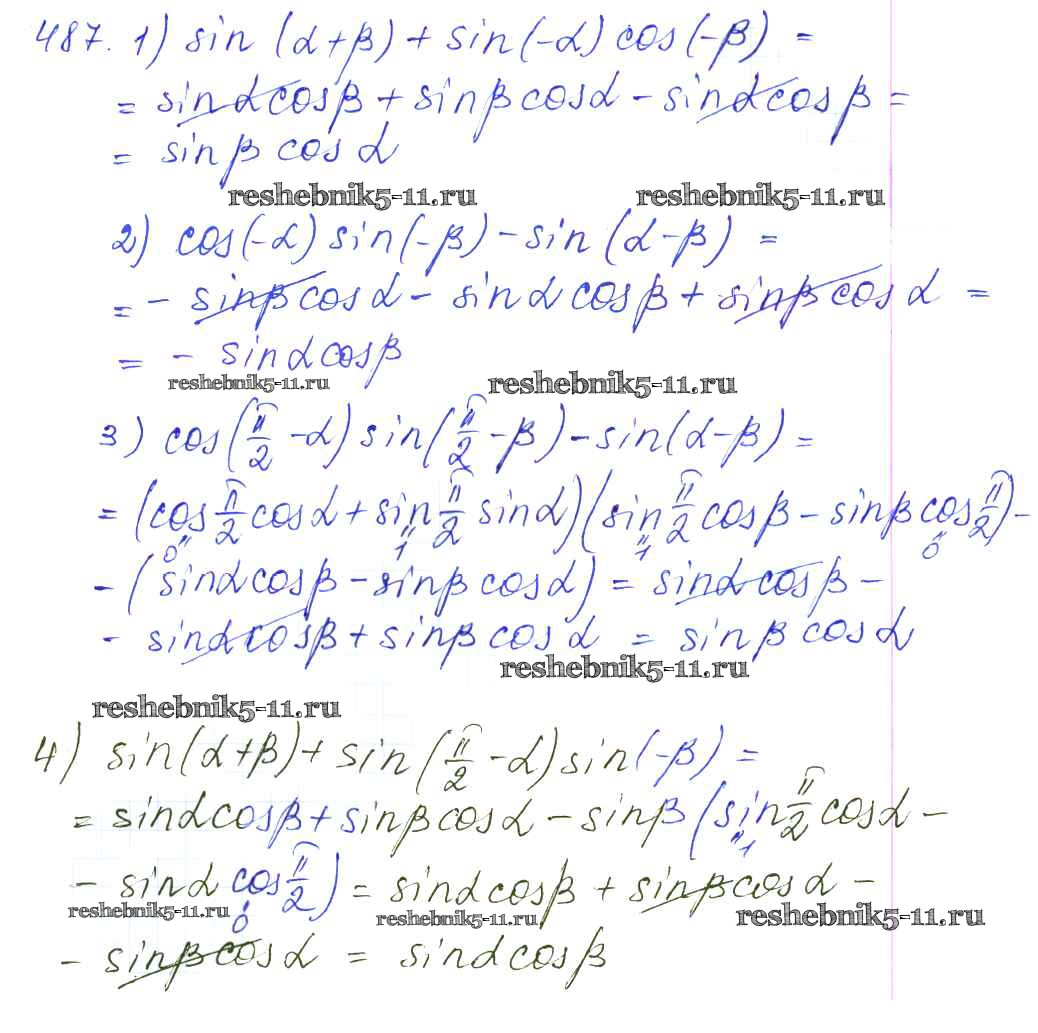 487. 1) sin (α+β) + sin(-α) cos(-β) =
= sinα cosβ + sinβ cosα - sinα cosβ =
= sinβ cosα
reshebnik5-11.ru reshebnik5-11.ru
2) cos(-α) sin(-β) - sin (α-β) =
= - sinβ cosα - sinα cosβ + sinβ cosα =
= - sinα cosβ
reshebnik5-11.ru reshebnik5-11.ru
3) cos(π/2 - α) sin(π/2 - β) - sin(α-β) =
= (cos π/2 cosα + sin π/2 sinα)(sin π/2 cosβ - sinβ cos π/2) -
"0 "1 "1 "0
- (sinα cosβ - sinβ cosα) = sinα cosβ -
- sinα cosβ + sinβ cosα = sinβ cosα
reshebnik5-11.ru
reshebnik5-11.ru
4) sin(α+β) + sin(π/2 - α) sin(-β) =
= sinα cosβ + sinβ cosα - sinβ (sin π/2 cosα -
"1
- sinα cos π/2) = sinα cosβ + sinβ cosα -
"0
reshebnik5-11.ru reshebnik5-11.ru reshebnik5-11.ru
- sinβ cosα = sinα cosβ